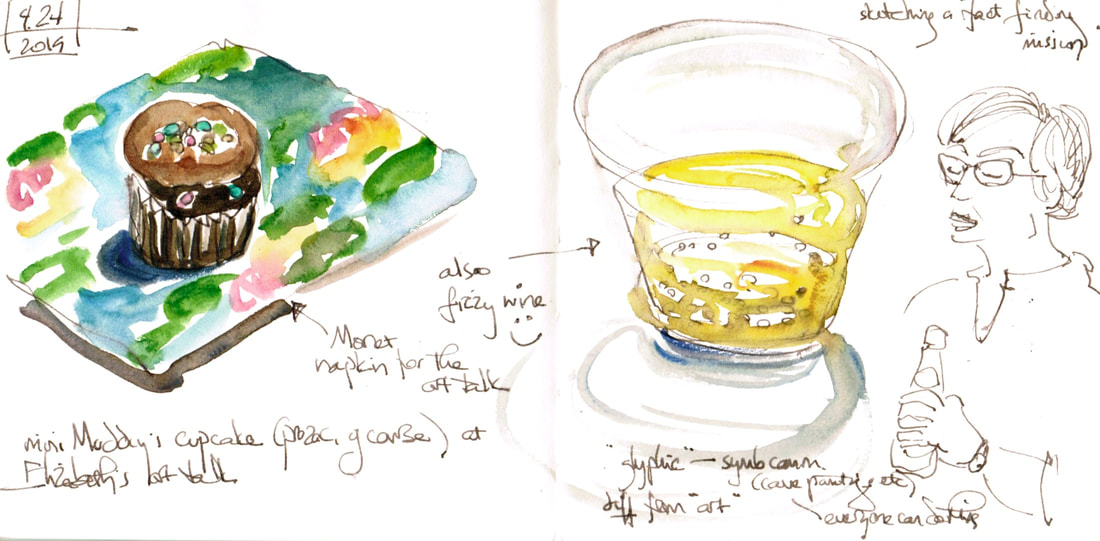 9.24
2019
sketching a fact finding
mission
also
fizzy wine
Monet
napkin for the
art talk
mini Maddy's cupcake (prozac, of course) at
Elizabeth's art talk
"glyphic" — symb comm.
(cave paintings etc)
diff from "art"
everyone can do this